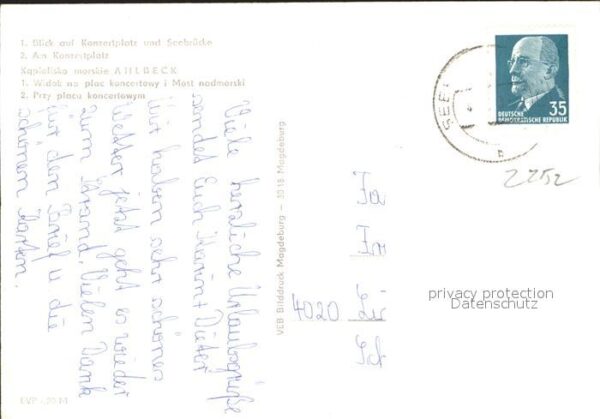 1. Blick auf Konzertplatz und Seebrücke
2. Am Konzertplatz
Kąpielisko morskie AHLBECK
1. Widok na plac koncertowy i Most nadmorski
2. Przy placu koncertowym
Viele herzliche Urlaubsgrüße
sendet Euch Karin + Dieter
Wir haben sehr schönes
Wetter jetzt geht es wieder
zum Strand. Vielen Dank
für den Brief u die
schönen Karten.
VEB Bilddruck Magdeburg – 3018 Magdeburg
SEEB
35
DEUTSCHE
DEMOKRATISCHE REPUBLIK
2252
Fa
4020
privacy protection
Datenschutz